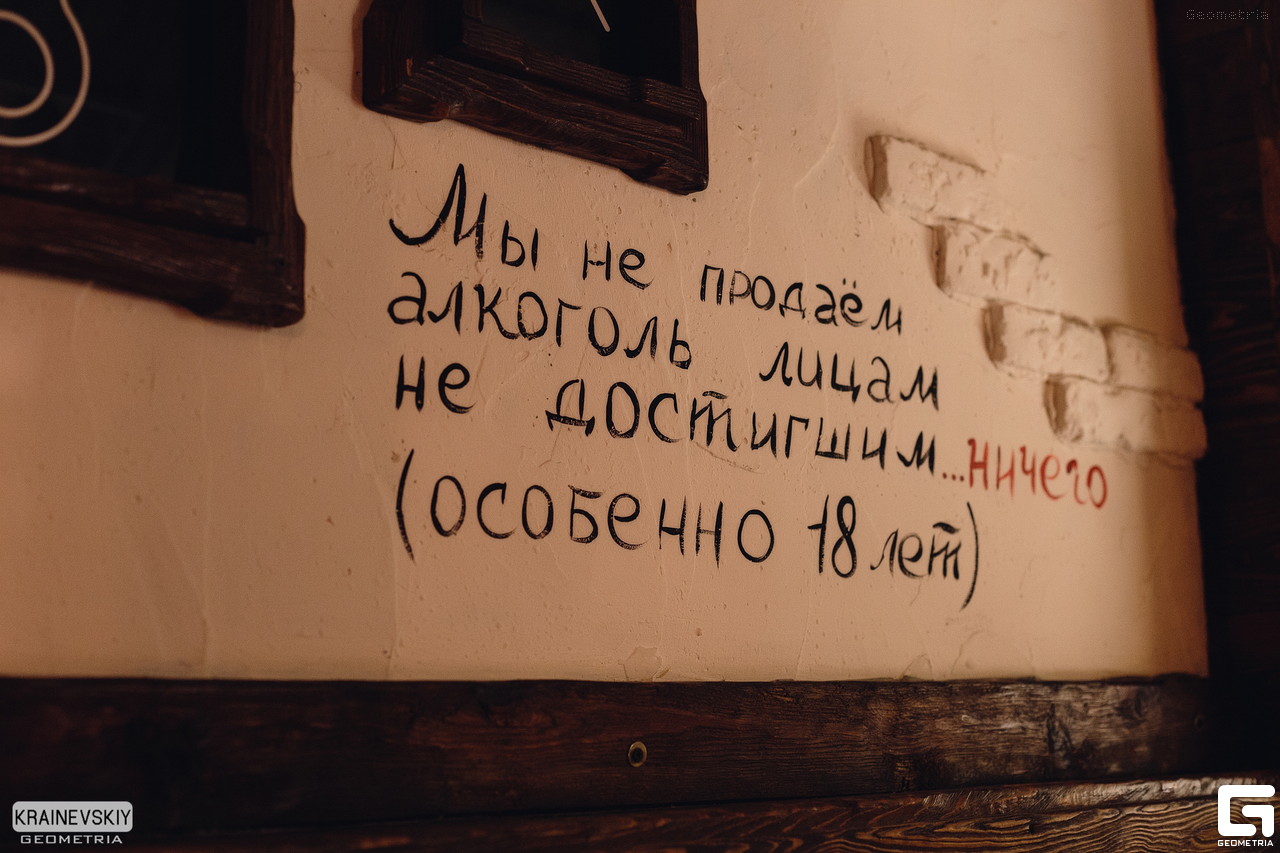 Geometria
Мы не продаём
алкоголь лицам
не достигшим...ничего
(особенно 18 лет)
KRAINEVSKIY
GEOMETRIA
GEOMETRIA